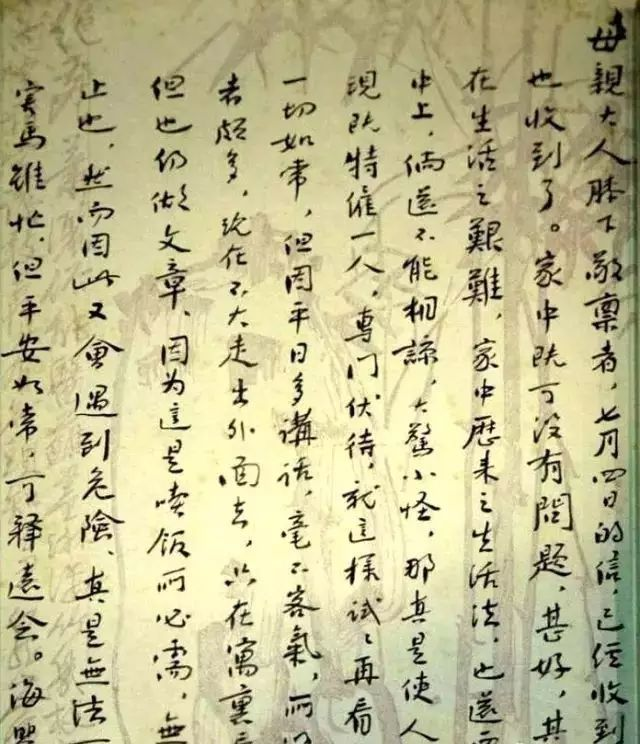 母親大人膝下敬稟者，七月四日的信，已經收到
也收到了。家中既可沒有問題，甚好，其
在生活之艱難，家中歷來之生活法，也還
中上，倘還不能相諒，大驚小怪，那真是使人
現既特雇一人，專門伏待，就這樣試試再看
一切如常，但因平日多講話，毫不客氣，而
者頗多，現在不大走出外面去，只在寓裏
但也仍做文章，因为這是喫飯所必需，無
止也，然而因此又會遇到危險，真是無法
害馬雖忙，但平安如常，可釋遠念。海